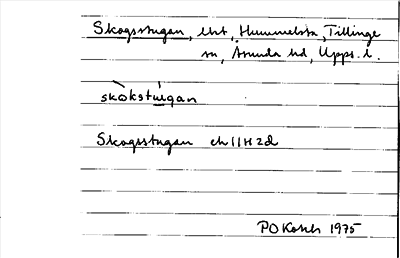 Skogsstugan, lht, Hummelsta, Tillinge
sn, Åsunda hd, Upps. l.
skòkstúgan
Skogsstugan ek 11H 2d
PO 1975